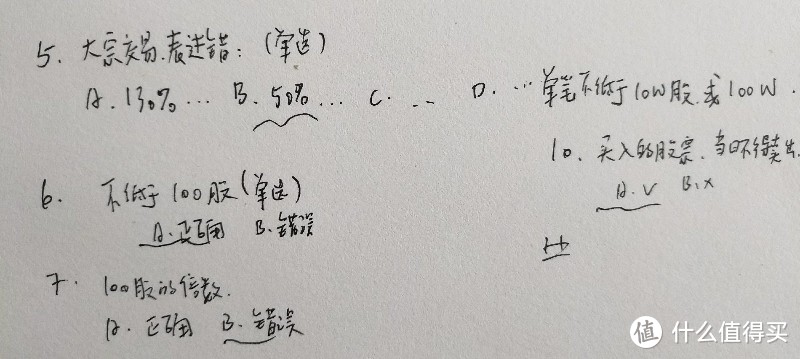 5. 大宗交易.表述错：(单选)
A. 130%... B. 50%... C. ... D. ...单笔不低于10W股.或100W.
10. 买入的股票.当日不得卖出.
A. √ B. ×
6. 不低于100股(单选)
A. 正确 B. 错误
7. 100股的倍数.
A. 正确 B. 错误
值 什么值得买